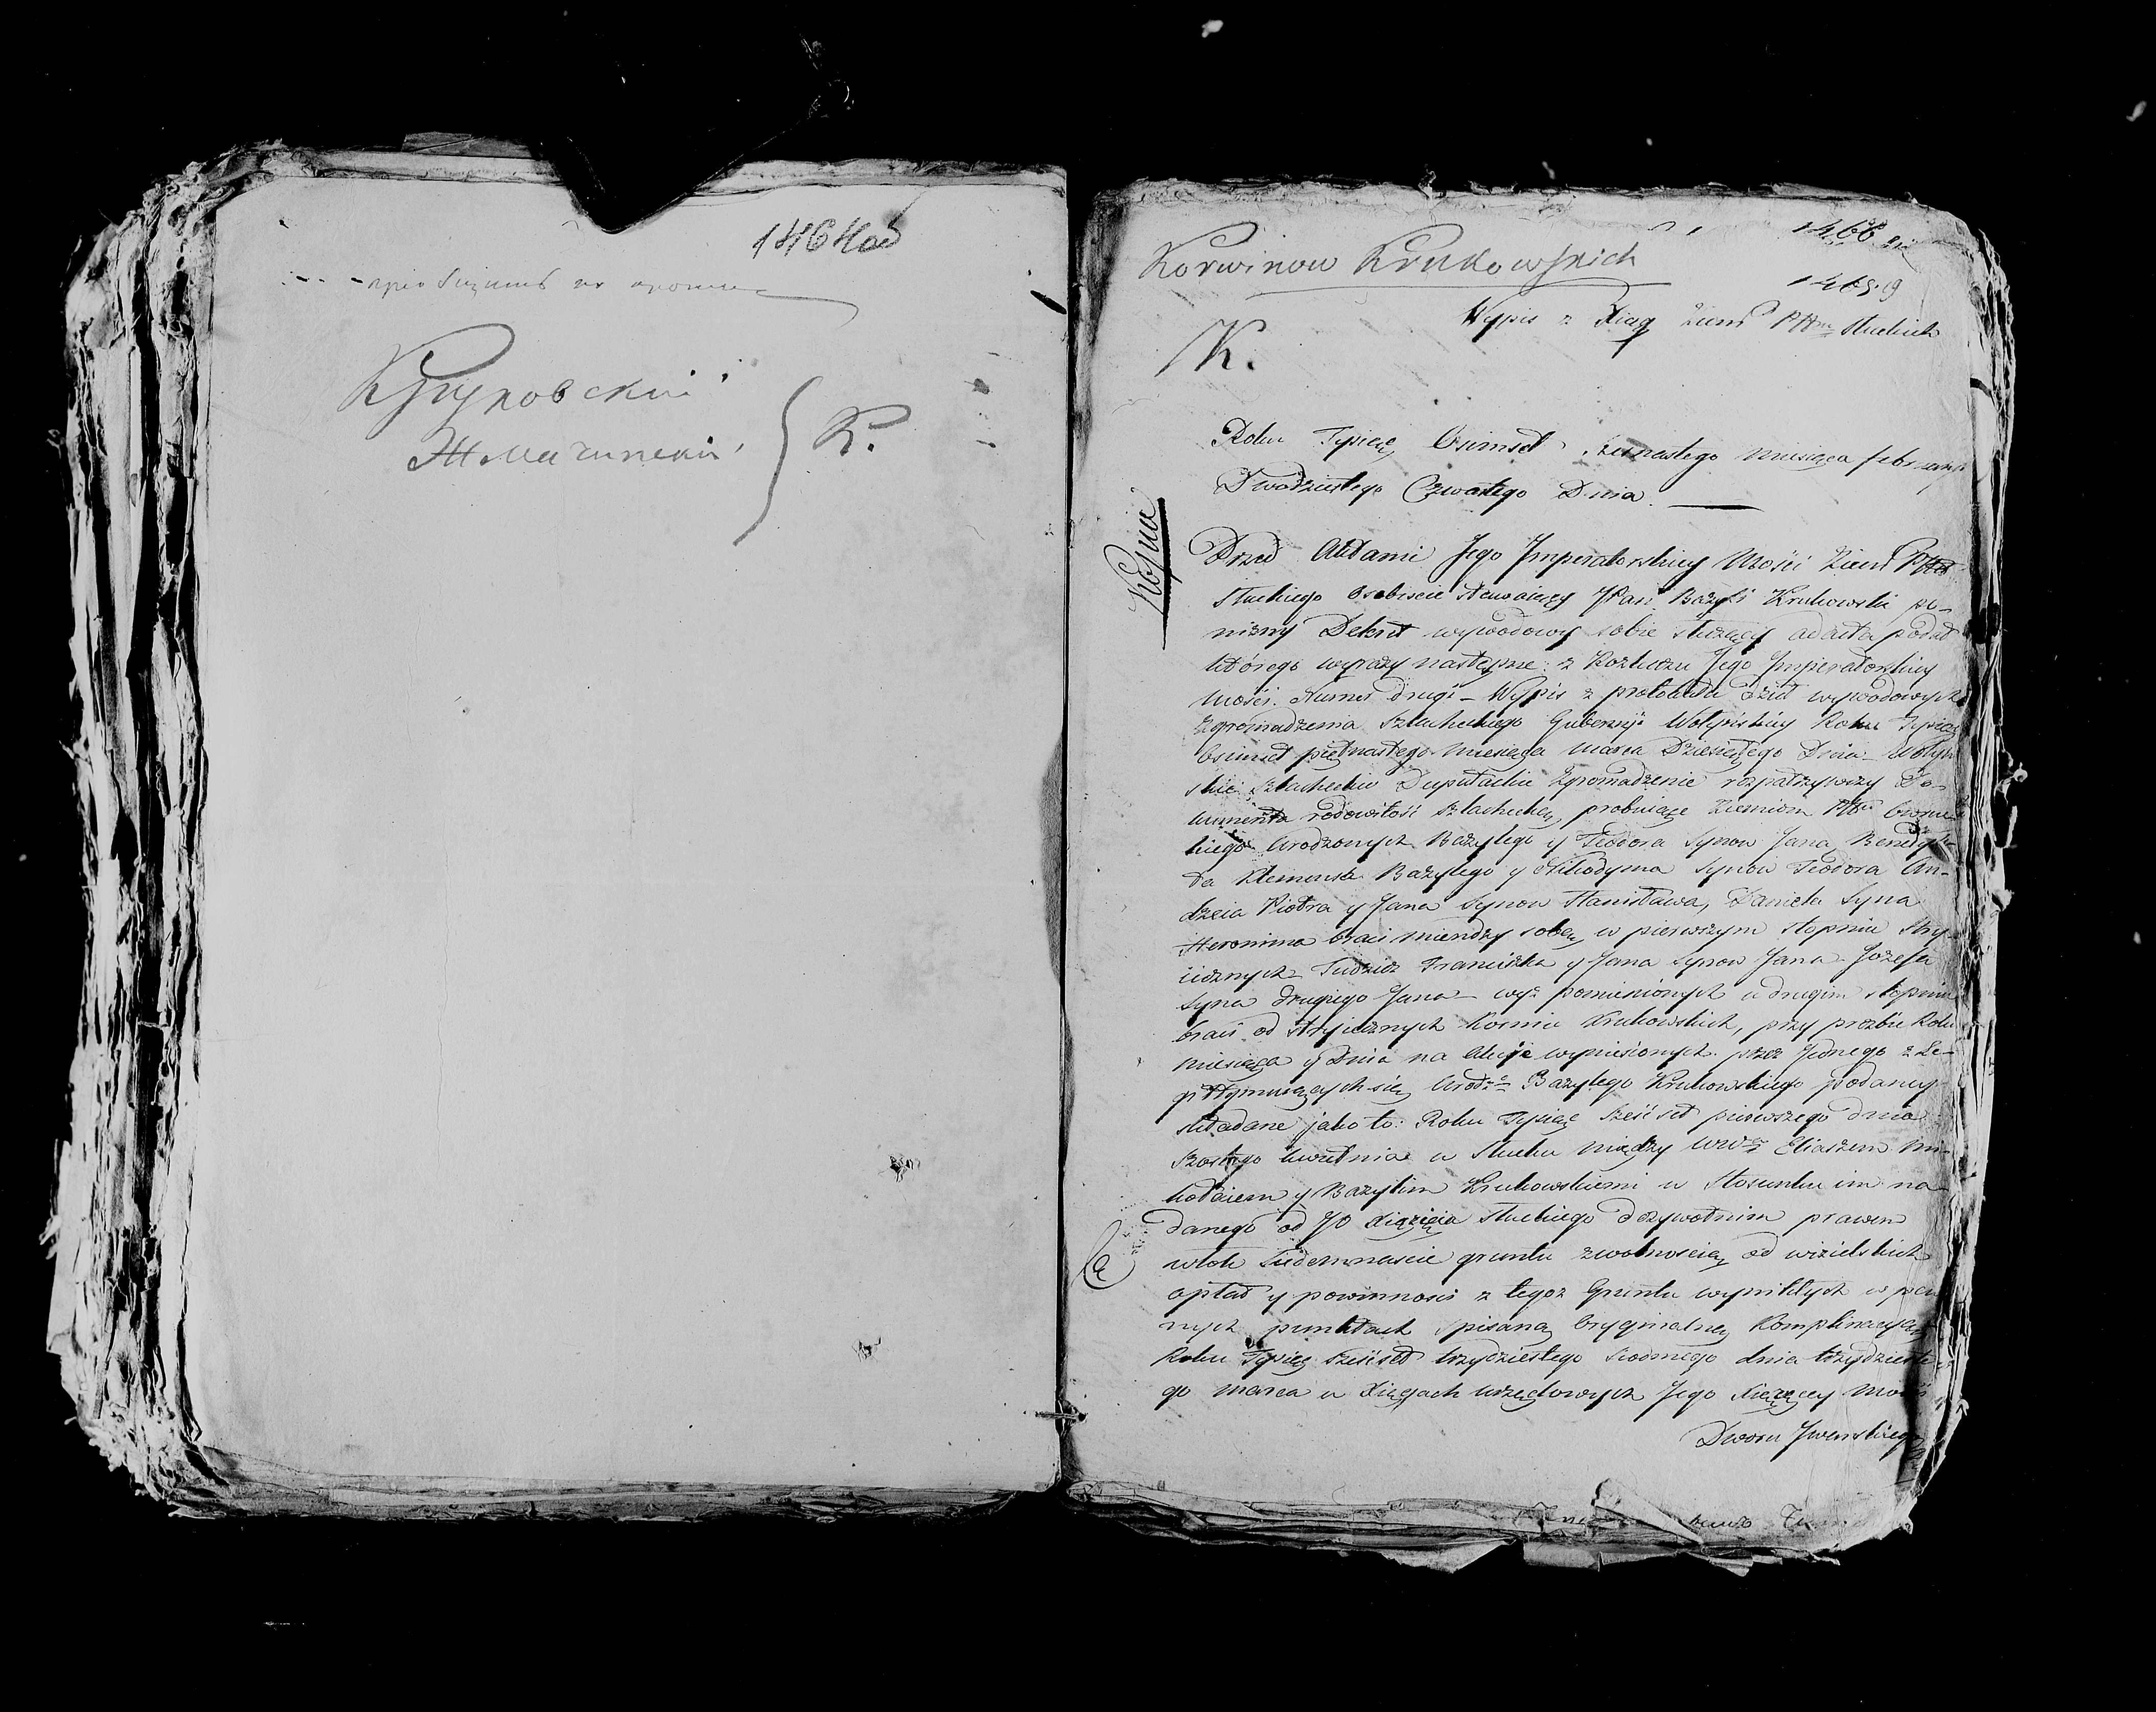 1464 об
приобщить къ
Круковскій
К.
Korwinow Krukowskich
1466
1465
Wypis z Xiąg Ziem Pttu Słuckich
K.
Roku Tysiąc Osimset szesnastego miesiąca februarii
Dwódziestego Czwartego Dnia.
Kopia
Przed Aktami Jego Imperatorskiey Mości Ziem Pttu
Słuckiego osobiście stawaiący JPan Bazyli Krukowski po-
niżny Dekret wywodowy sobie służący ad acta podał
którego wyrazy następne: z Rozkazu Jego Imperatorskiey
Mości. Numer drugi - Wypis z protokułu dział wywodowych
Zgromadzenia Szlacheckiego Gubernji Wołyńskiey Roku Tysiąc
Osimset piętnastego miesiąca marca Dziesiątego Dnia - Wołyń
skie Szlacheckie Deputackie Zgromadzenie rozpatrzywszy Do-
kumenta rodowitość szlachecką probuiące Ziemian Pttu
kiego Urodzonych Bazylego y Teodora Synow Jana, Benedyk
ta Klemensa Bazylego y Nikodyma Synow Teodora An-
drzeia Piotra y Jana Synow Stanisława, Daniela Syna
Heronima braci miendzy sobą w pierwszym stopniu Stry-
iecznych Tudzież Franciszka y Jana Synow Jana Jozefa
Syna drugiego Jana wyż pomienionych w drugim stopniu
braci od stryiecznych Korwin Krukowskich, przy prozbie Roku
miesiąca y Dnia na Akcie wyniesionych przez Jednego z Le-
gittymuiących się Urodz Bazylego Krukowskiego podaney
składane jako to: Roku Tysiąc Sześćset pierwszego dnia
Szostego kwietnia w Słucku między Eliaszem Mi-
kołaiem y Bazylim Krukowskiemi w Stosunku im na
danego od JO Xiążęcia Słuckiego dożywotnim prawem
włok Siedemnaście gruntu zwolnością od wszelkich
opłat y powinnosci z tegoż Gruntu wynikłych w pew
nych punktach spisaną Oryginalną Komplanacyą
Roku Tysiąc sześćset trzydziestego siodmego dnia trzydzieste
go marca w Xięgach urzędowych Jego Xiążęcey Mości
Dworu